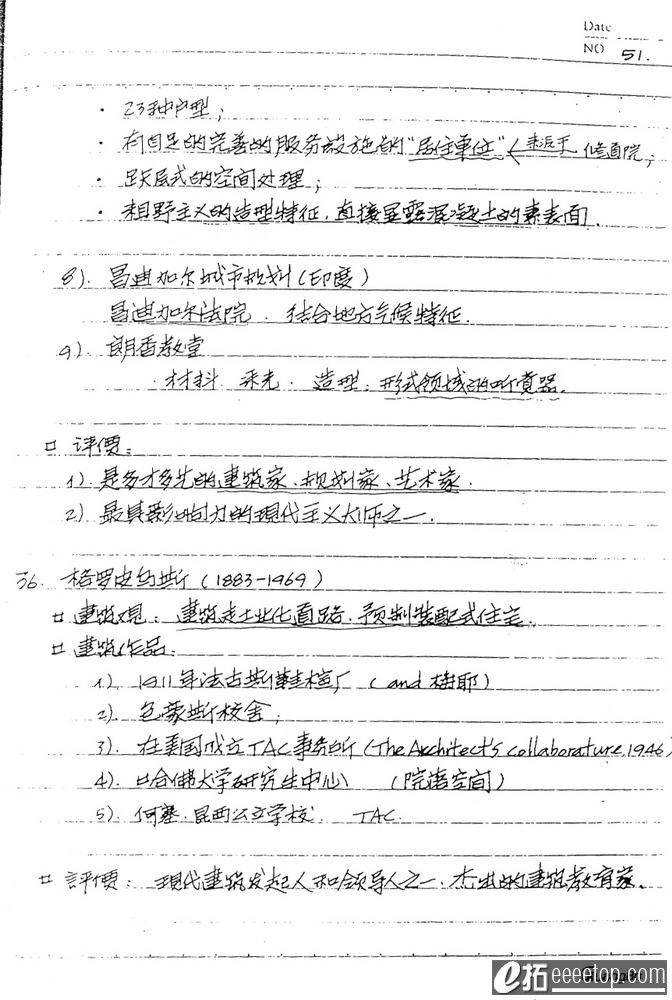 Date
NO 51.
· 23种户型；
· 有自足的完善的服务设施的"居住单位"< 来源于 修道院；
· 跃层式的空间处理；
· 粗野主义的造型特征，直接显露混凝土的素表面.
8). 昌迪加尔城市规划(印度)
昌迪加尔法院. 结合地方气候特征.
9). 朗香教堂
·材料 采光. 造型: 形式领域的听觉器.
评價:
1) 是多才多艺的建筑家、规划家、艺术家.
2) 最具影响力的現代主义大师之一.
36. 格罗皮乌斯 (1883-1969)
建筑观: 建筑走工业化道路. 预制装配式住宅.
建筑作品:
1) 1911年法古斯鞋楦厂 (and 梅耶)
2). 包豪斯校舍;
3). 在美国成立TAC事务所 (The Architect's collaborature.1946)
4). 哈佛大学研究生中心 (院落空间)
5). 何塞.昆西公立学校. TAC.
評價: 現代建筑发起人和领导人之一. 杰出的建筑教育家.
e拓 eeetop.com